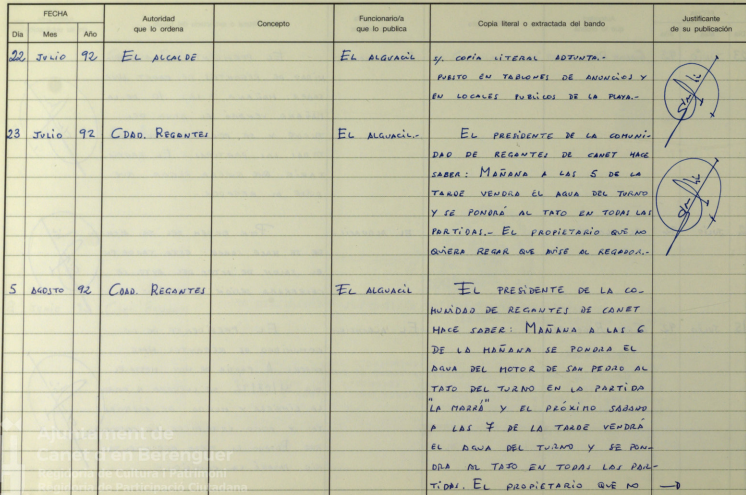 FECHA
Día Mes Año
Autoridad
que lo ordena
Concepto
Funcionario/a
que lo publica
Copia literal o extractada del bando
Justificante
de su publicación
22 JULIO 92 EL ALCALDE EL ALGUACIL S/. COPIA LITERAL ADJUNTA.-
PUESTO EN TABLONES DE ANUNCIOS Y
EN LOCALES PUBLICOS DE LA PLAYA.-
23 JULIO 92 CDAD. REGANTES EL ALGUACIL.- EL PRESIDENTE DE LA COMUNI-
DAD DE REGANTES DE CANET HACE
SABER: MAÑANA A LAS 5 DE LA
TARDE VENDRA EL AGUA DEL TURNO
Y SE PONDRÁ AL TATO EN TODAS LAS
PARTIDAS.- EL PROPIETARIO QUE NO
QUIERA REGAR QUE AVISE AL REGADOR.-
5 AGOSTO 92 CDAD. REGANTES EL ALGUACIL EL PRESIDENTE DE LA CO-
MUNIDAD DE REGANTES DE CANET
HACE SABER: MAÑANA A LAS 6
DE LA MAÑANA SE PONDRA EL
AGUA DEL MOTOR DE SAN PEDRO AL
TATO DEL TURNO EN LA PARTIDA
"LA MARRÁ" Y EL PRÓXIMO SABADO
A LAS 7 DE LA TARDE VENDRÁ
EL AGUA DEL TURNO Y SE PON-
DRA AL TATO EN TODAS LAS PAR-
TIDAS. EL PROPIETARIO QUE NO
Ajuntament de
Canet d'en Berenguer
Regidoria de Cultura i Patrimoni
Regidoria de Participació Ciutadana